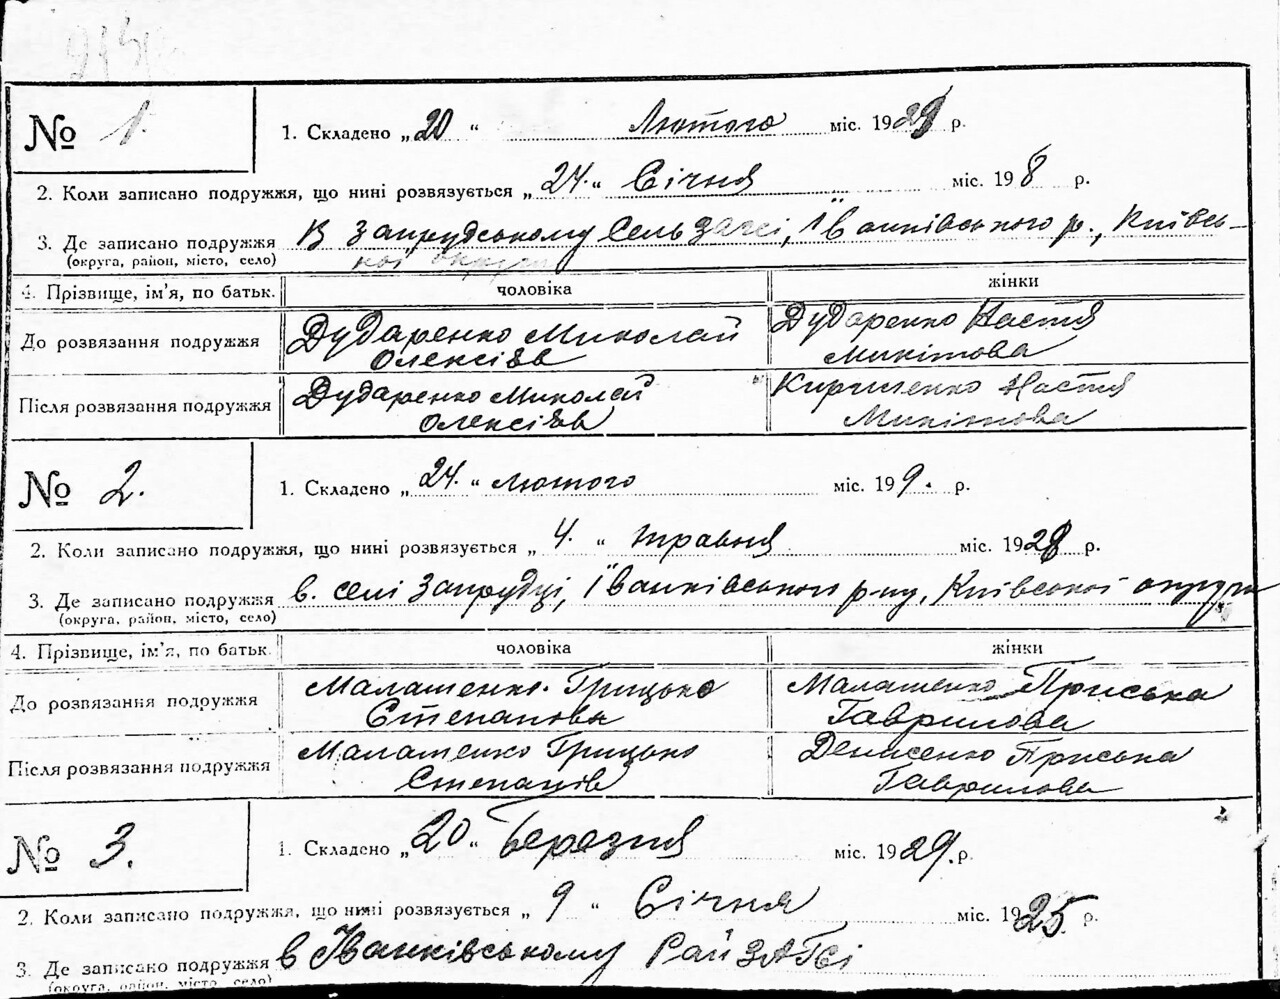 № 1.
1. Складено „20“ Лютого міс. 1929 р.
2. Коли записано подружжя, що нині розвязується „24.“ Січня міс. 198 р.
3. Де записано подружжя В Запрудському Сельзагсі, Іванківського р., Київсь-
(округа, район, місто, село) кої округи
4. Прізвище, ім’я, по батьк. чоловіка жінки
До розвязання подружжя Дударенко Миколай Дударенко Настя
Олексіїв Микітова
Після розвязання подружжя Дударенко Миколай Кириченко Настя
Олексіїв Микітова
№ 2.
1. Складено „24.“ лютого міс. 199. р.
2. Коли записано подружжя, що нині розвязується „4.“ травня міс. 1928 р.
3. Де записано подружжя в. селі Запрудці, Іванківського р-ну, Київської округи
(округа, район, місто, село)
4. Прізвище, ім’я, по батьк. чоловіка жінки
До розвязання подружжя Малашенко Грицько Малашенко Приська
Степанова Гаврилова
Після розвязання подружжя Малашенко Грицько Денисенко Приська
Степанів Гаврилова
№ 3.
1. Складено „20“ Березня міс. 1929. р.
2. Коли записано подружжя, що нині розвязується „9“ Січня міс. 1925 р.
3. Де записано подружжя в Іванківському РайЗАГСі
(округа, район, місто, село)